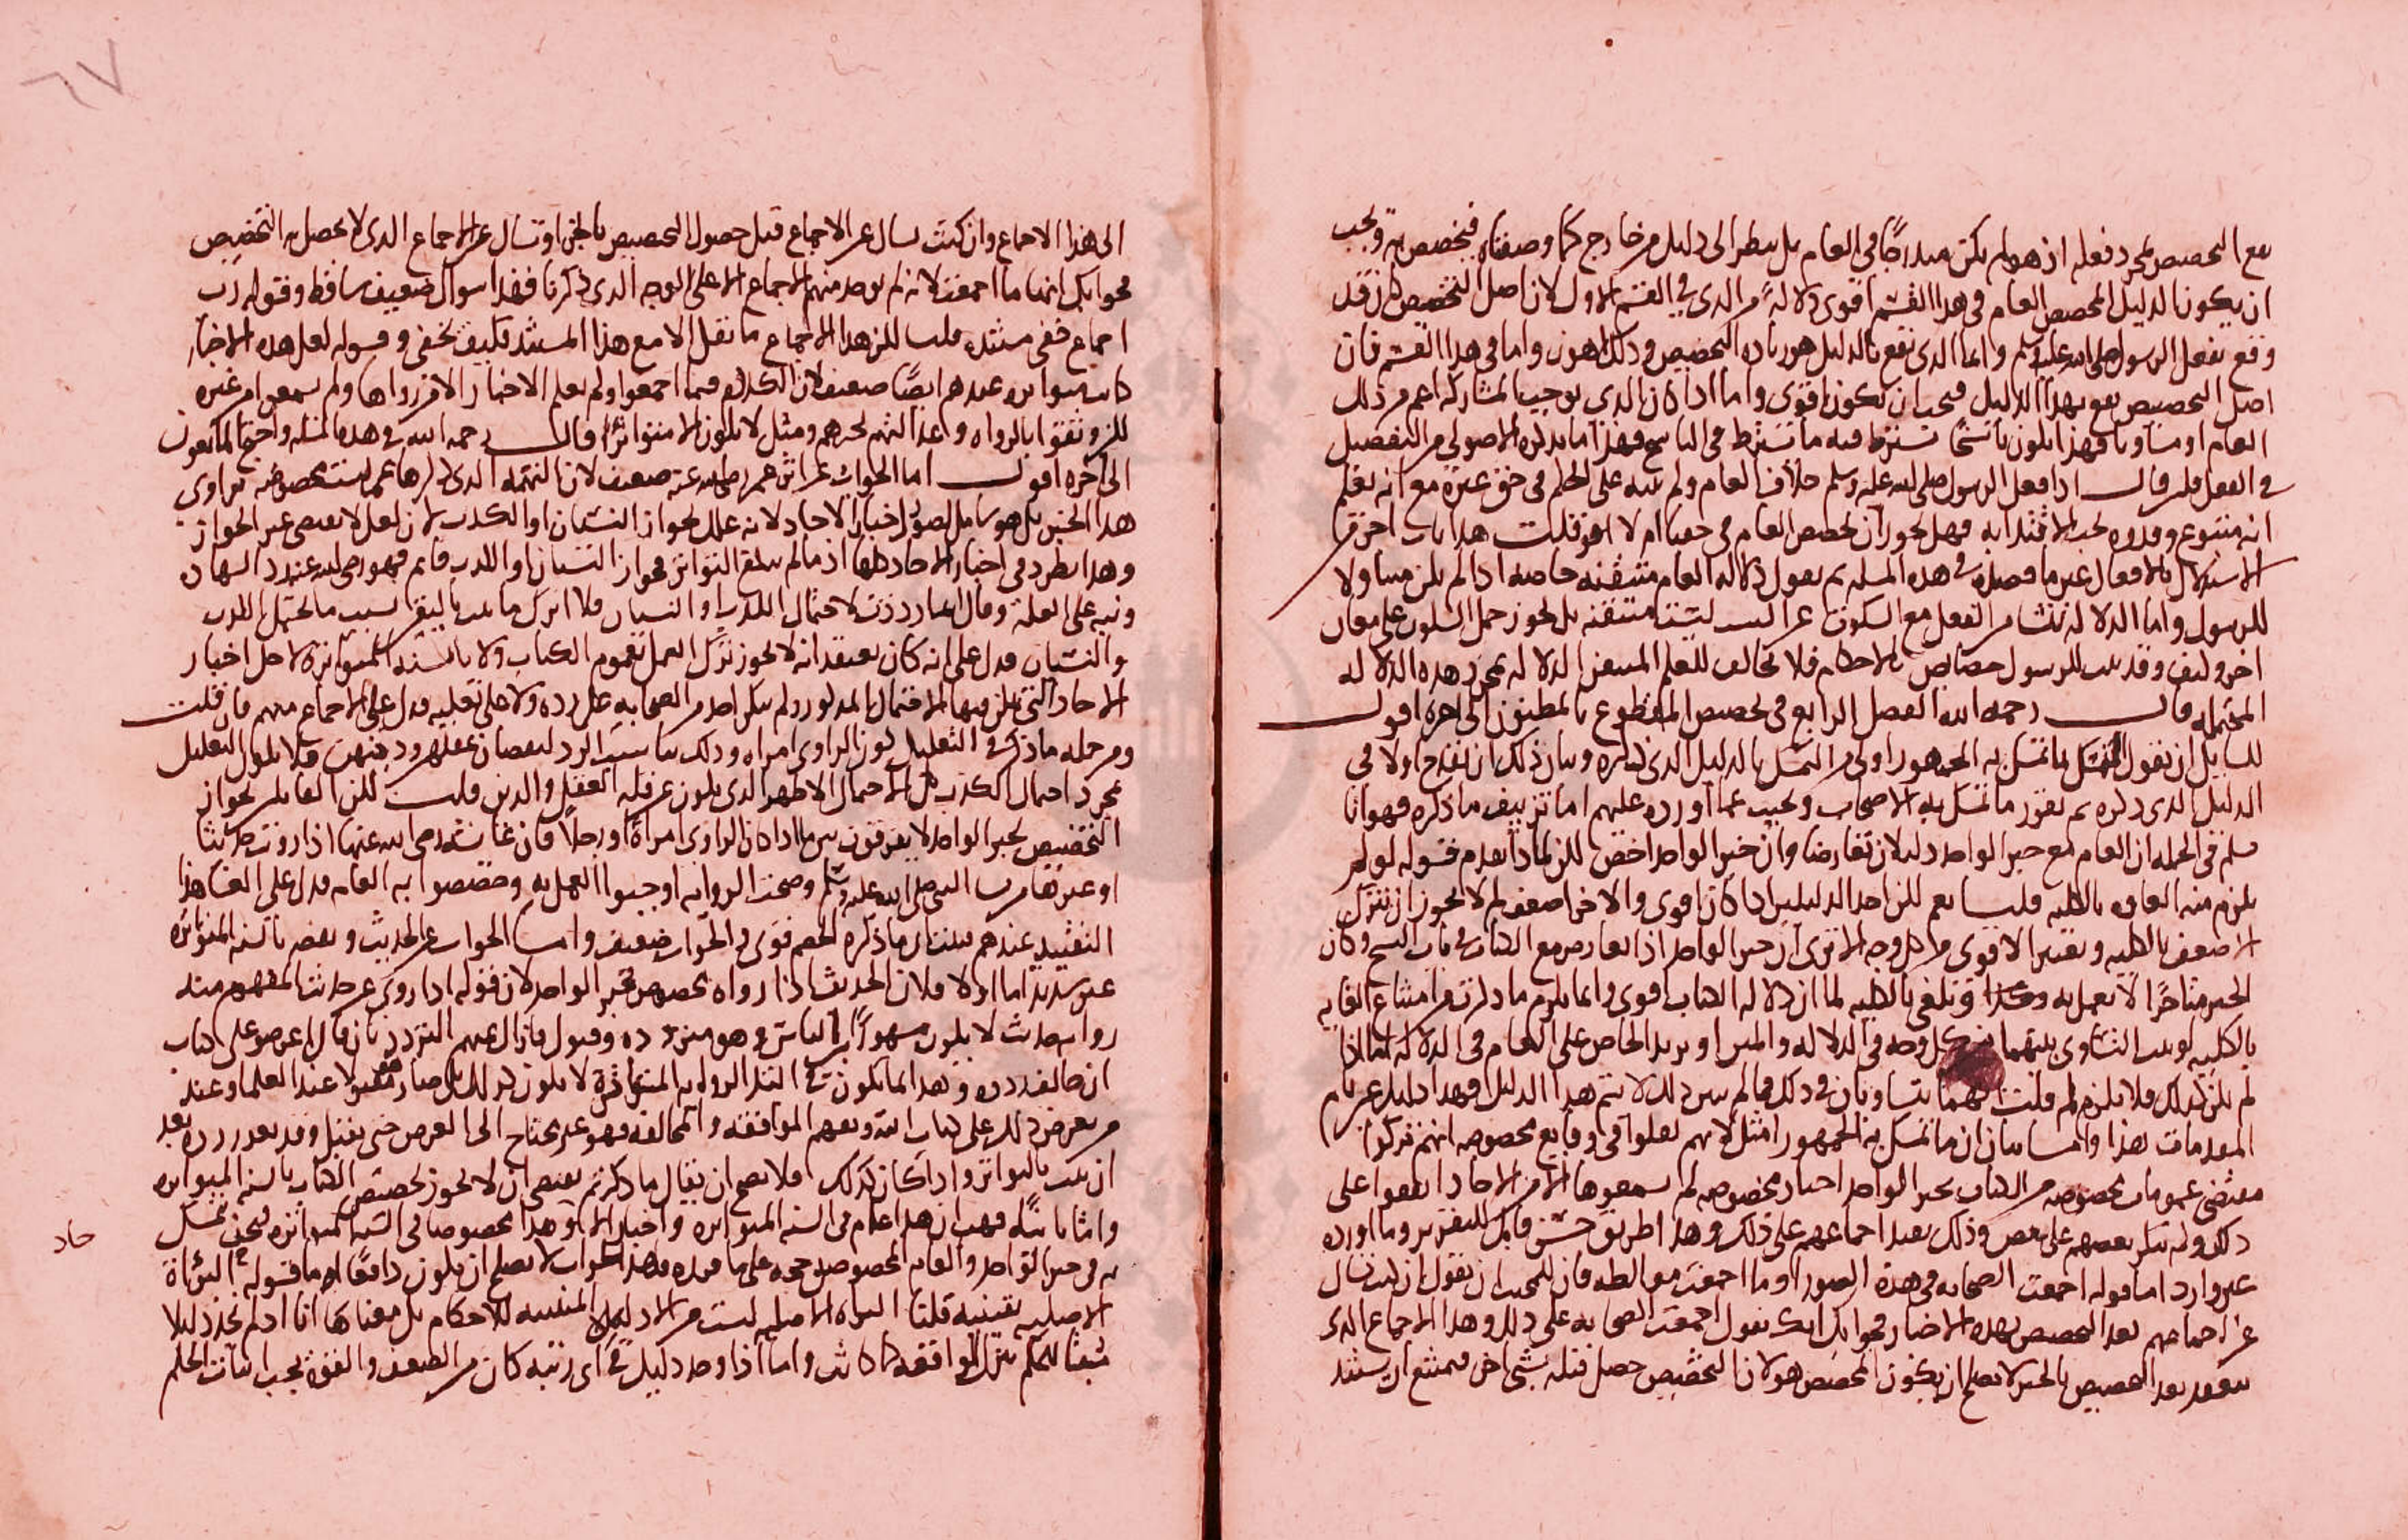 يقع التخصيص بمجرد فعله اذ هو لم يكن مندرجا في العام بل ينظر الى دليل من خارج كما وصفناه فيخصص به ويجب
ان يكون الدليل المخصص العام في هذا القسم اقوى دلالة من الذي في القسم الاول لان اصل التخصيص كان قد
وقع بفعل الرسول صلى الله عليه وسلم وانما الذي يقع بالدليل هو زيادة التخصيص وذلك اهون واما في هذا القسم فان
اصل التخصيص يقع بهذا الدليل فيجب ان يكون اقوى واما اذا كان الذي يوجب المشاركة اعم من ذلك
العام او مساويا فهذا يكون ناسخا تشترط فيه ما تشترط في الناسخ فهذا ما يذكره الاصولي من التفصيل
في الفعل فلو قال اذا فعل الرسول صلى الله عليه وسلم خلاف العام ولم ينبه على الحكم في حق غيره مع انه يعلم
انه متبوع وقدوة يجب الاقتداء به فهل يجوز ان يخصص العام في حقنا ام لا قلت هذا باب اخر من
الاستدلال بالافعال غير ما فصله في هذه المسله ثم نقول دلالة العام متيقنة خاصة اذا لم يكن متناولا
للرسول واما الدلالة تنشأ من الفعل مع السكوت عن ليست متيقنة بل يجوز حمل السكوت على معان
اخر وليف وقد ثبت للرسول خصايص بالاحكام فلا تخالف للعلم المتيقن الدلالة بمجرد هذه الدلالة
المحتملة قال رحمه الله الفصل الرابع في تخصيص المقطوع بالمظنون الى اخره اقول
للسايل ان يقول التمسك بما تمسك به الجمهور اولى من التمسك بالدليل الذي ذكره وبيان ذلك ان نقدح اولا في
الدليل الذي ذكره ثم نقرر ما تمسك به الاصحاب ونجيب عما اورده عليهم اما تزييف ما ذكره فهو انا
نسلم في الجملة ان العام مع خبر الواحد دليلان تعارضا وان خبر الواحد اخص لكن لماذا يقدم قوله لو لم
يلزم منه الغاوه بالكلية قلنا نعم لكن احد الدليلين اذا كان اقوى والاخر اضعف لم لا يجوز ان يترك
الاضعف بالكلية ويعتبر الاقوى من كل وجه الا ترى ان خبر الواحد اذا تعارض مع الكتاب في باب النسخ وكان
الخبر متاخرا لا يعمل به وهكذا ويلغى بالكلية لما ان دلالة الكتاب اقوى وانما يلزم ما ذكرت من امتناع الغايه
بالكلية لو ثبت التساوي بينهما من كل وجه في الدلالة والمتن او يزيد الخاص على العام في الدلالة اما اذا
لم يكن كذلك فلا يلزم لم قلت انهما يتساويان في ذلك فما لم يبين ذلك لا يتم هذا الدليل فهذا دليل غير تام
المقدمات هذا واما بيان ان ما تمسك به الجمهور امثل لانهم نقلوا في وقايع مخصوصه انهم تركوا
مقتضى عمومات مخصوصه من الكتاب بخبر الواحد اخبار مخصوصه لم يسمعوها الا من الاحاد اتفقوا على
ذلك ولم ينكر بعضهم على بعض وذلك يفيد اجماعهم على ذلك وهذا طريق حسن قابل للتقرير وما اورده
غير وارد اما قوله اجمعت الصحابه في هذه الصور او ما اجمعت مغالطه فان للمجيب ان يقول ان كنت تسال
عن اجماعهم بعد التخصيص بهذه الاخبار فجوابك انك نقول اجمعت الصحابه على ذلك وهذا الاجماع الذي
ينعقد بعد التخصيص بالخبر لا يصلح ان يكون المخصص هو لان التخصيص حصل قبله بشي اخر فيمتنع ان يستند
الى هذا الاجماع وان كنت تسال عن الاجماع قبل حصول التخصيص بالخبر او تسال عن الاجماع الذي لا يحصل به التخصيص
فجوابك انها ما اجمعت لانه لم يوجد منهم الاجماع الا على الوجه الذي ذكرنا فهذا سوال ضعيف ساقط وقوله رب
اجماع خفي مستنده قلنا لكن هذا الاجماع ما نقل الا مع هذا المستند فكيف يخفى وقوله لعل هذه الاخبار
كانت متواتره عندهم ايضا ضعيف لان الكلام فيما اجمعوا ولم يعلم الاخبار الا من رواها ولم يسمع من غيره
لكن وثقوا بالرواه ومثل لا يكون الا متواترا قال رحمه الله في هذه المسله واحتج المانعون
الى اخره اقول اما الجواب عن اثر عمر رضي الله عنه ضعيف لان التهمه الذي ذكرها عمر ليست مخصوصه براوي
هذا الخبر بل هو شامل لصور اخبار الاحاد لانه علل بجواز النسيان او الكذب لان لعل لا تقتضي غير الجواز
وهذا يطرد في اخبار الاحاد كلها اذ ما لم يبلغ التواتر فجواز النسيان او الكذب قايم فهو رضي الله عنه رد الشهاده
ونبه على العلة وقال انما رددت لاحتمال الكذب او النسيان فلا اترك ما ثبت باليقين بسبب ما يحتمل الكذب
والنسيان فدل على انه كان يعتقد انه لا يجوز ترك العمل بعموم الكتاب ولا بالسنه المتواتره لاجل اخبار
الاحاد التي يمكن فيها الاحتمال المذكور ولم ينكر احد من الصحابه على رده ولا على تعليله فدل على الاجماع منهم فان قلت
ومن جمله ما ذكر في التعليل كون الراوي امراه وذلك يناسب الرد لنقصان عقلهن ودينهن فلا يكون التعليل
بمجرد احتمال الكذب بل الاحتمال الاظهر الذي يكون عن قلة العقل والدين قلنا لكن القايلين بجواز
التخصيص بخبر الواحد لا يفرقون بين ما اذا كان الراوي امراة او رجلا فان عايشه رضي الله عنها اذا روت حديثا
او غيرها من النبي صلى الله عليه وسلم وصحت الروايه اوجبوا العمل به وخصصوا به العام فدل على الغا هذا
التقييد عندهم فثبت ان ما ذكره الخصم قوي والجواب ضعيف واما الجواب عن الحديث ونقضه بالسنه المتواتره
غير سديد اما اولا فلان الحديث اذا رواه مخصوص بخبر الواحد لان قوله اذا روي عني حديث المفهوم منه
رواية حديث لا يكون مشهورا بين الناس وهو متردد وقبول فازال عنهم التردد بان قال اعرضوه على كتاب
ان خالف ردوه وهذا انما يكون في اما الروايه المتواترة لا يكون كذلك بل صار مقبولا عند العلماء وعند
من يعرض ذلك على كتاب الله ويفهم الموافقه والمخالفه فهو غير محتاج الى العرض حتى يقبل وقد يعد رده بعد
ان ثبت بالتواتر واذا كان كذلك فلا يصح ان يقال ما ذكرتم يقتضي ان لا يجوز تخصيص الكتاب بالسنه المتواتره
واما ثانيا فهب ان هذا عام في السنه المتواتره واخبار الاحاد وهذا مخصوصا في السنه المتواتره فيجب تمسك
به في خبر الواحد والعام المخصوص حجه على ما فهذا الجواب لا يصلح ان يكون دافعا اما قوله البراة
الاصليه يقينيه قلنا البراه الاصليه ليست من الادله المثبته للاحكام بل معناها انا اذا لم نجد دليلا
مثبتا للحكم نترك الواقعه كما كانت واما اذا وجد دليل في اي رتبه كان من الضعف والقوه يجب اثبات الحكم
حاد
٦٧